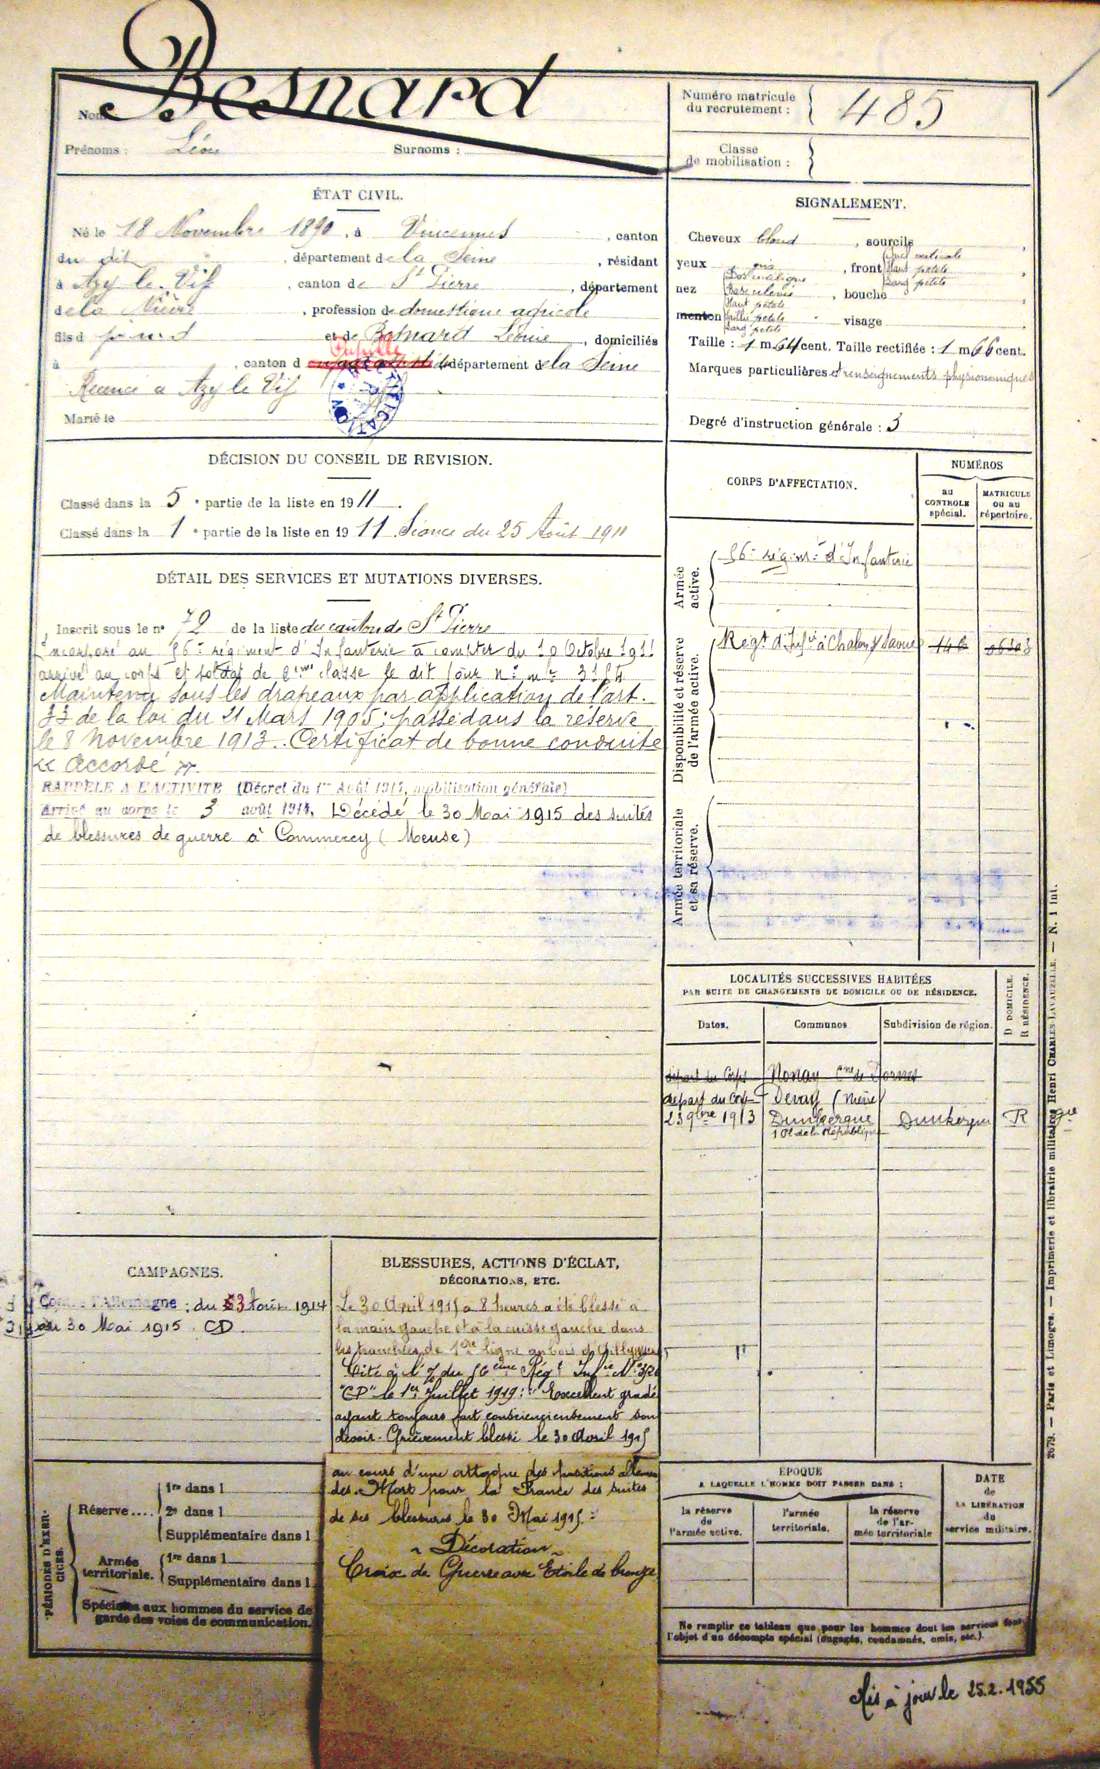 Besnard
Nom
Prénoms : Léon Surnoms :
Numéro matricule
du recrutement : 485
Classe
de mobilisation :
ÉTAT CIVIL.
Né le 18 Novembre 1890, à Vincennes, canton
du dit, département de la Seine, résidant
à Azy le Vif, canton de St Pierre, département
de la Nièvre, profession de domestique agricole
fils d et de Besnard Léonie, domiciliés
Pupille
à , canton d département de la Seine
Recencé à Azy le Vif
Marié le
SIGNALEMENT.
Cheveux blond, sourcils
yeux gris, front
nez Dos rectiligne Base relevée Haut petite Saillie petite Larg petite, bouche
menton visage
Taille : 1 m 64 cent. Taille rectifiée : 1 m 66 cent.
Marques particulières et renseignements physionomiques
Degré d'instruction générale : 3
DÉCISION DU CONSEIL DE REVISION.
Classé dans la 5e partie de la liste en 1911.
Classé dans la 1e partie de la liste en 1911. Séance du 25 Août 1911
DÉTAIL DES SERVICES ET MUTATIONS DIVERSES.
Inscrit sous le no 72 de la liste du canton de St Pierre
Incorporé au 56e régiment d'Infanterie à compter du 10 Octobre 1911
arrivé au corps et soldat de 2ème classe le dit jour no mle
Maintenu sous les drapeaux par application de l'art.
33 de la loi du 21 Mars 1905; passé dans la réserve
le 8 Novembre 1913. Certificat de bonne conduite
"Accordé".
RAPPELÉ A L'ACTIVITÉ (Décret du 1er Août 1914, mobilisation générale)
Arrivé au corps le 3 août 1914. Décédé le 30 Mai 1915 des suites
de blessures de guerre à Commercy (Meuse)
CORPS D'AFFECTATION.
NUMÉROS
au
CONTROLE
spécial.
MATRICULE
ou au
répertoire.
Armée
active.
56e régimt d'Infanterie
Disponibilité et réserve
de l'armée active.
Régt d'Infie à Chalon s/ Saône
Armée territoriale
et sa réserve.
LOCALITÉS SUCCESSIVES HABITÉES
PAR SUITE DE CHANGEMENTS DE DOMICILE OU DE RÉSIDENCE.
Dates.
Communes
Subdivision de région.
D DOMICILE.
R RÉSIDENCE.
départ du Corps
départ du Corps Devay (Nièvre)
23 9bre 1913 Dunkerque Dunkerque R
1 Pl de la République
CAMPAGNES.
Contre l'Allemagne : du 3 Août 1914
au 30 Mai 1915. CD.
BLESSURES, ACTIONS D'ÉCLAT,
DÉCORATIONS, ETC.
Le 30 Avril 1915 à 8 heures a été blessé à
la main gauche et à la cuisse gauche dans
les tranchées de 1ère ligne au bois d'Ailly
Cité à l'O/ du 56ème Régt Infie No
"CD" le 1er Juillet 1919 : "Excellent gradé
ayant toujours fait consciencieusement son
devoir. Grièvement blessé le 30 Avril 1915
au cours d'une attaque des positions alleman
des. Mort pour la France des suites
de ses blessures le 30 Mai 1915."
Décoration
Croix de Guerre avec Etoile de bronze
PÉRIODES D'EXER-
CICES.
Réserve....
1re dans l
2e dans l
Supplémentaire dans l
Armée
territoriale.
1re dans l
Supplémentaire dans l
Spéciales aux hommes du service de
garde des voies de communication.
ÉPOQUE
A LAQUELLE L'HOMME DOIT PASSER DANS :
la réserve
de
l'armée active.
l'armée
territoriale.
la réserve
de l'ar-
mée territoriale
DATE
de
LA LIBÉRATION
du
service militaire.
Ne remplir ce tableau que pour les hommes dont les services font
l'objet d'un décompte spécial (engagés, condamnés, omis, etc.).
2679. — Paris et Limoges. — Imprimerie et librairie militaires Henri CHARLES-LAVAUZELLE. — N. 1 int.
Mis à jour le 25.2.1955